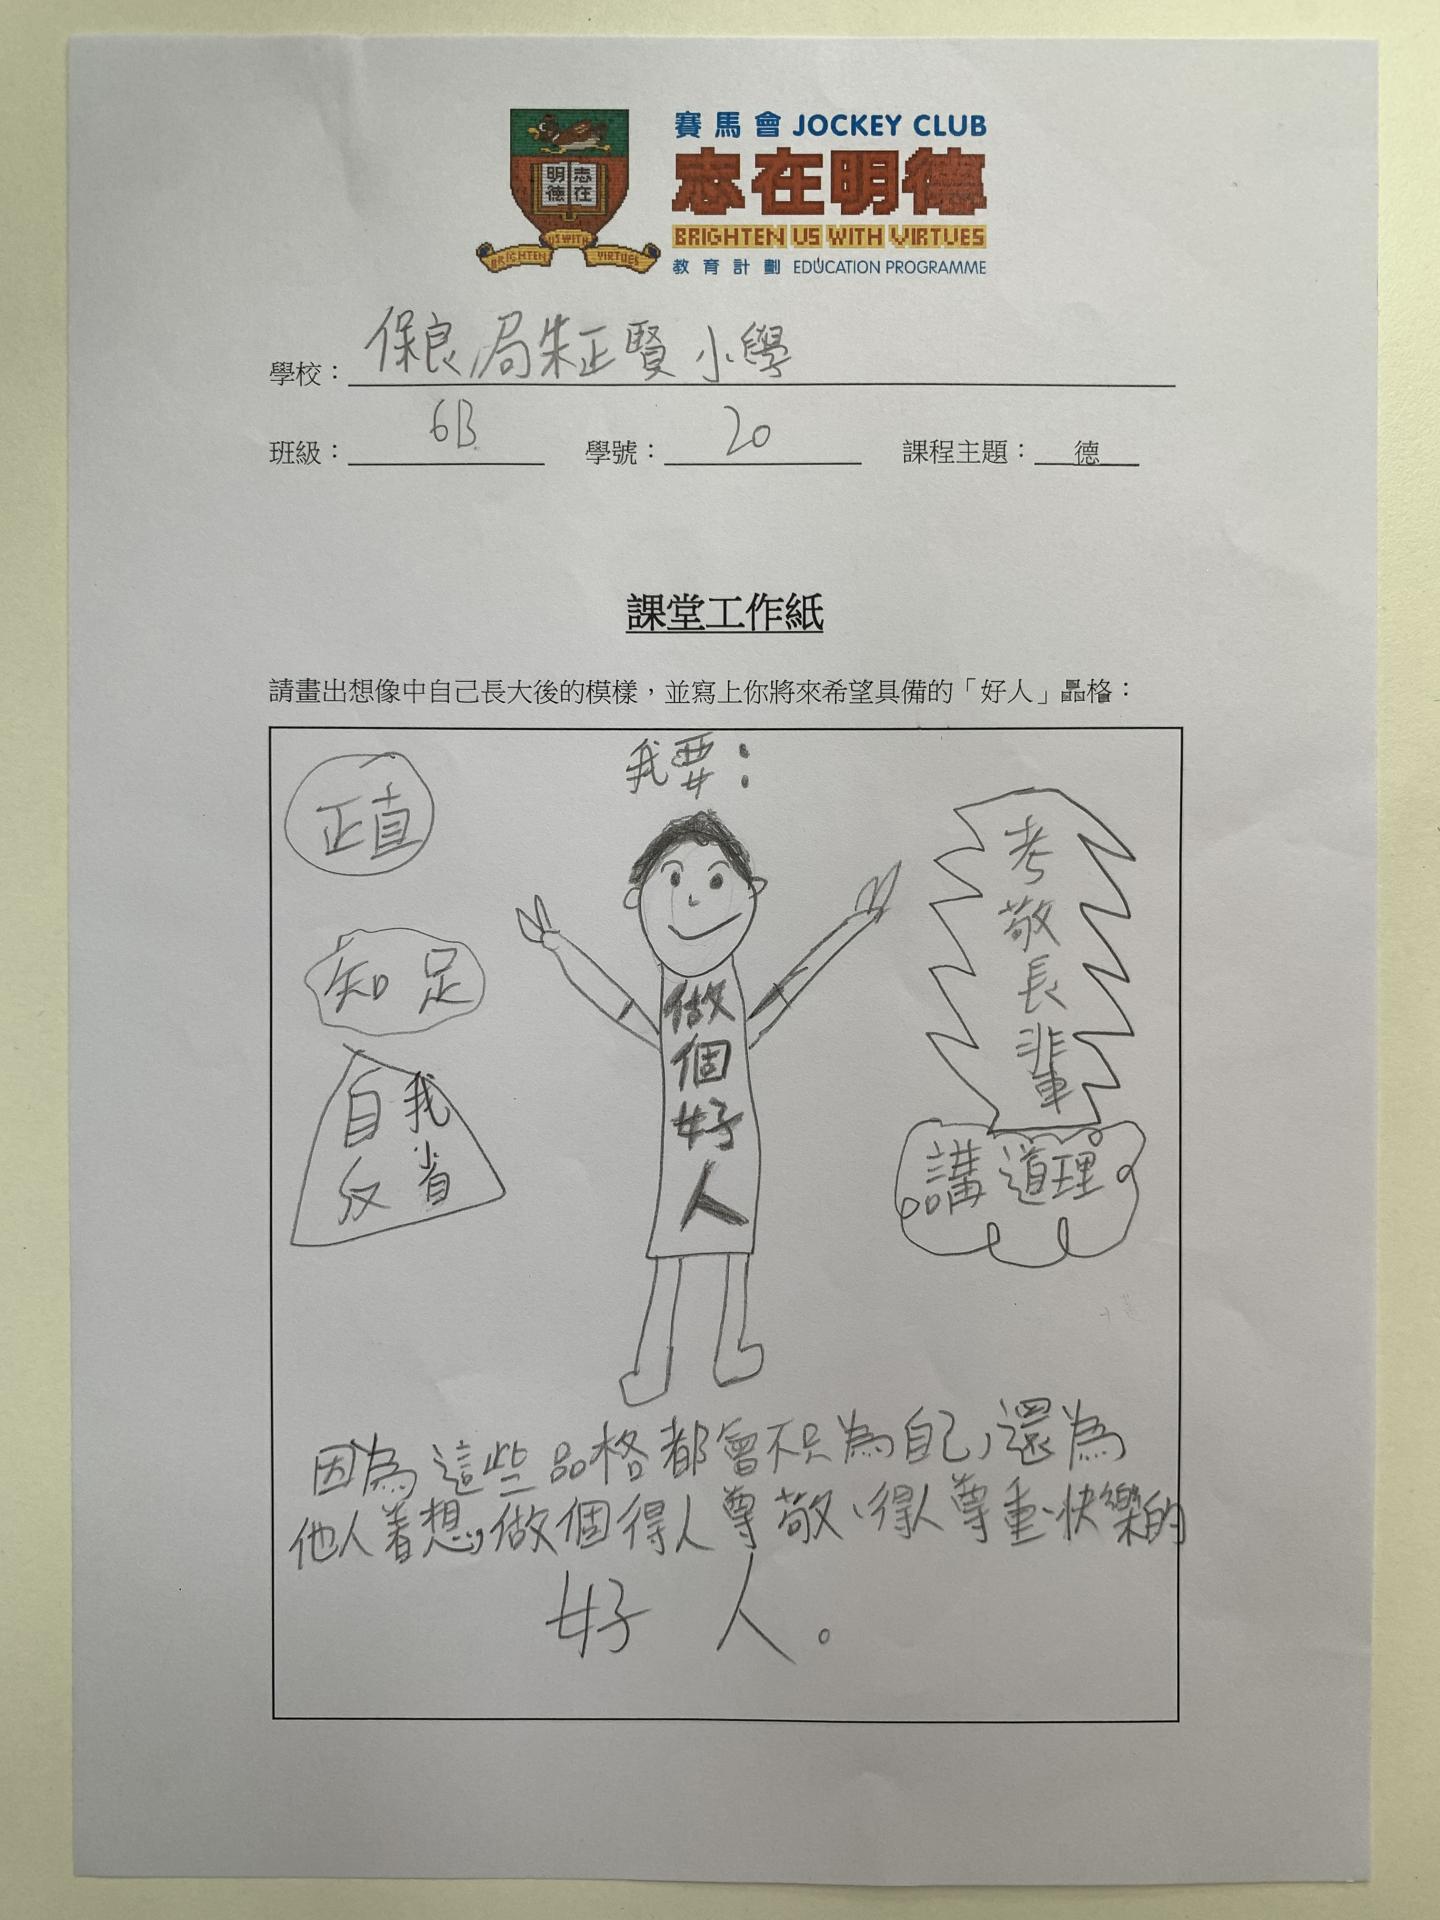 賽馬會 JOCKEY CLUB
志在明德
BRIGHTEN US WITH VIRTUES
教育計劃 EDUCATION PROGRAMME
明德 志在
BRIGHTEN US WITH VIRTUES
學校：保良局朱正賢小學
班級：6B 學號：20 課程主題：德
課堂工作紙
請畫出想像中自己長大後的模樣，並寫上你將來希望具備的「好人」品格：
我要：
正直
知足
自我
反省
做個好人
考敬長輩
講道理
因為這些品格都會不只為自己，還為
他人着想，做個得人尊敬、得人尊重、快樂的
好人。